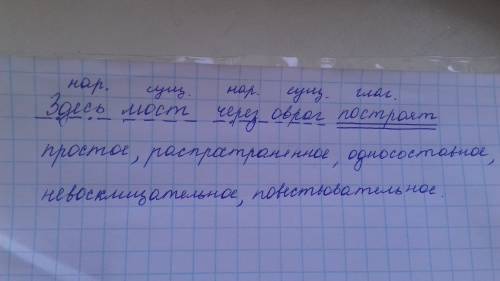 нар. сущ. нар. сущ. глаг.
Здесь мост через овраг построят
простое, распространенное, односоставное,
невосклицательное, повествовательное.